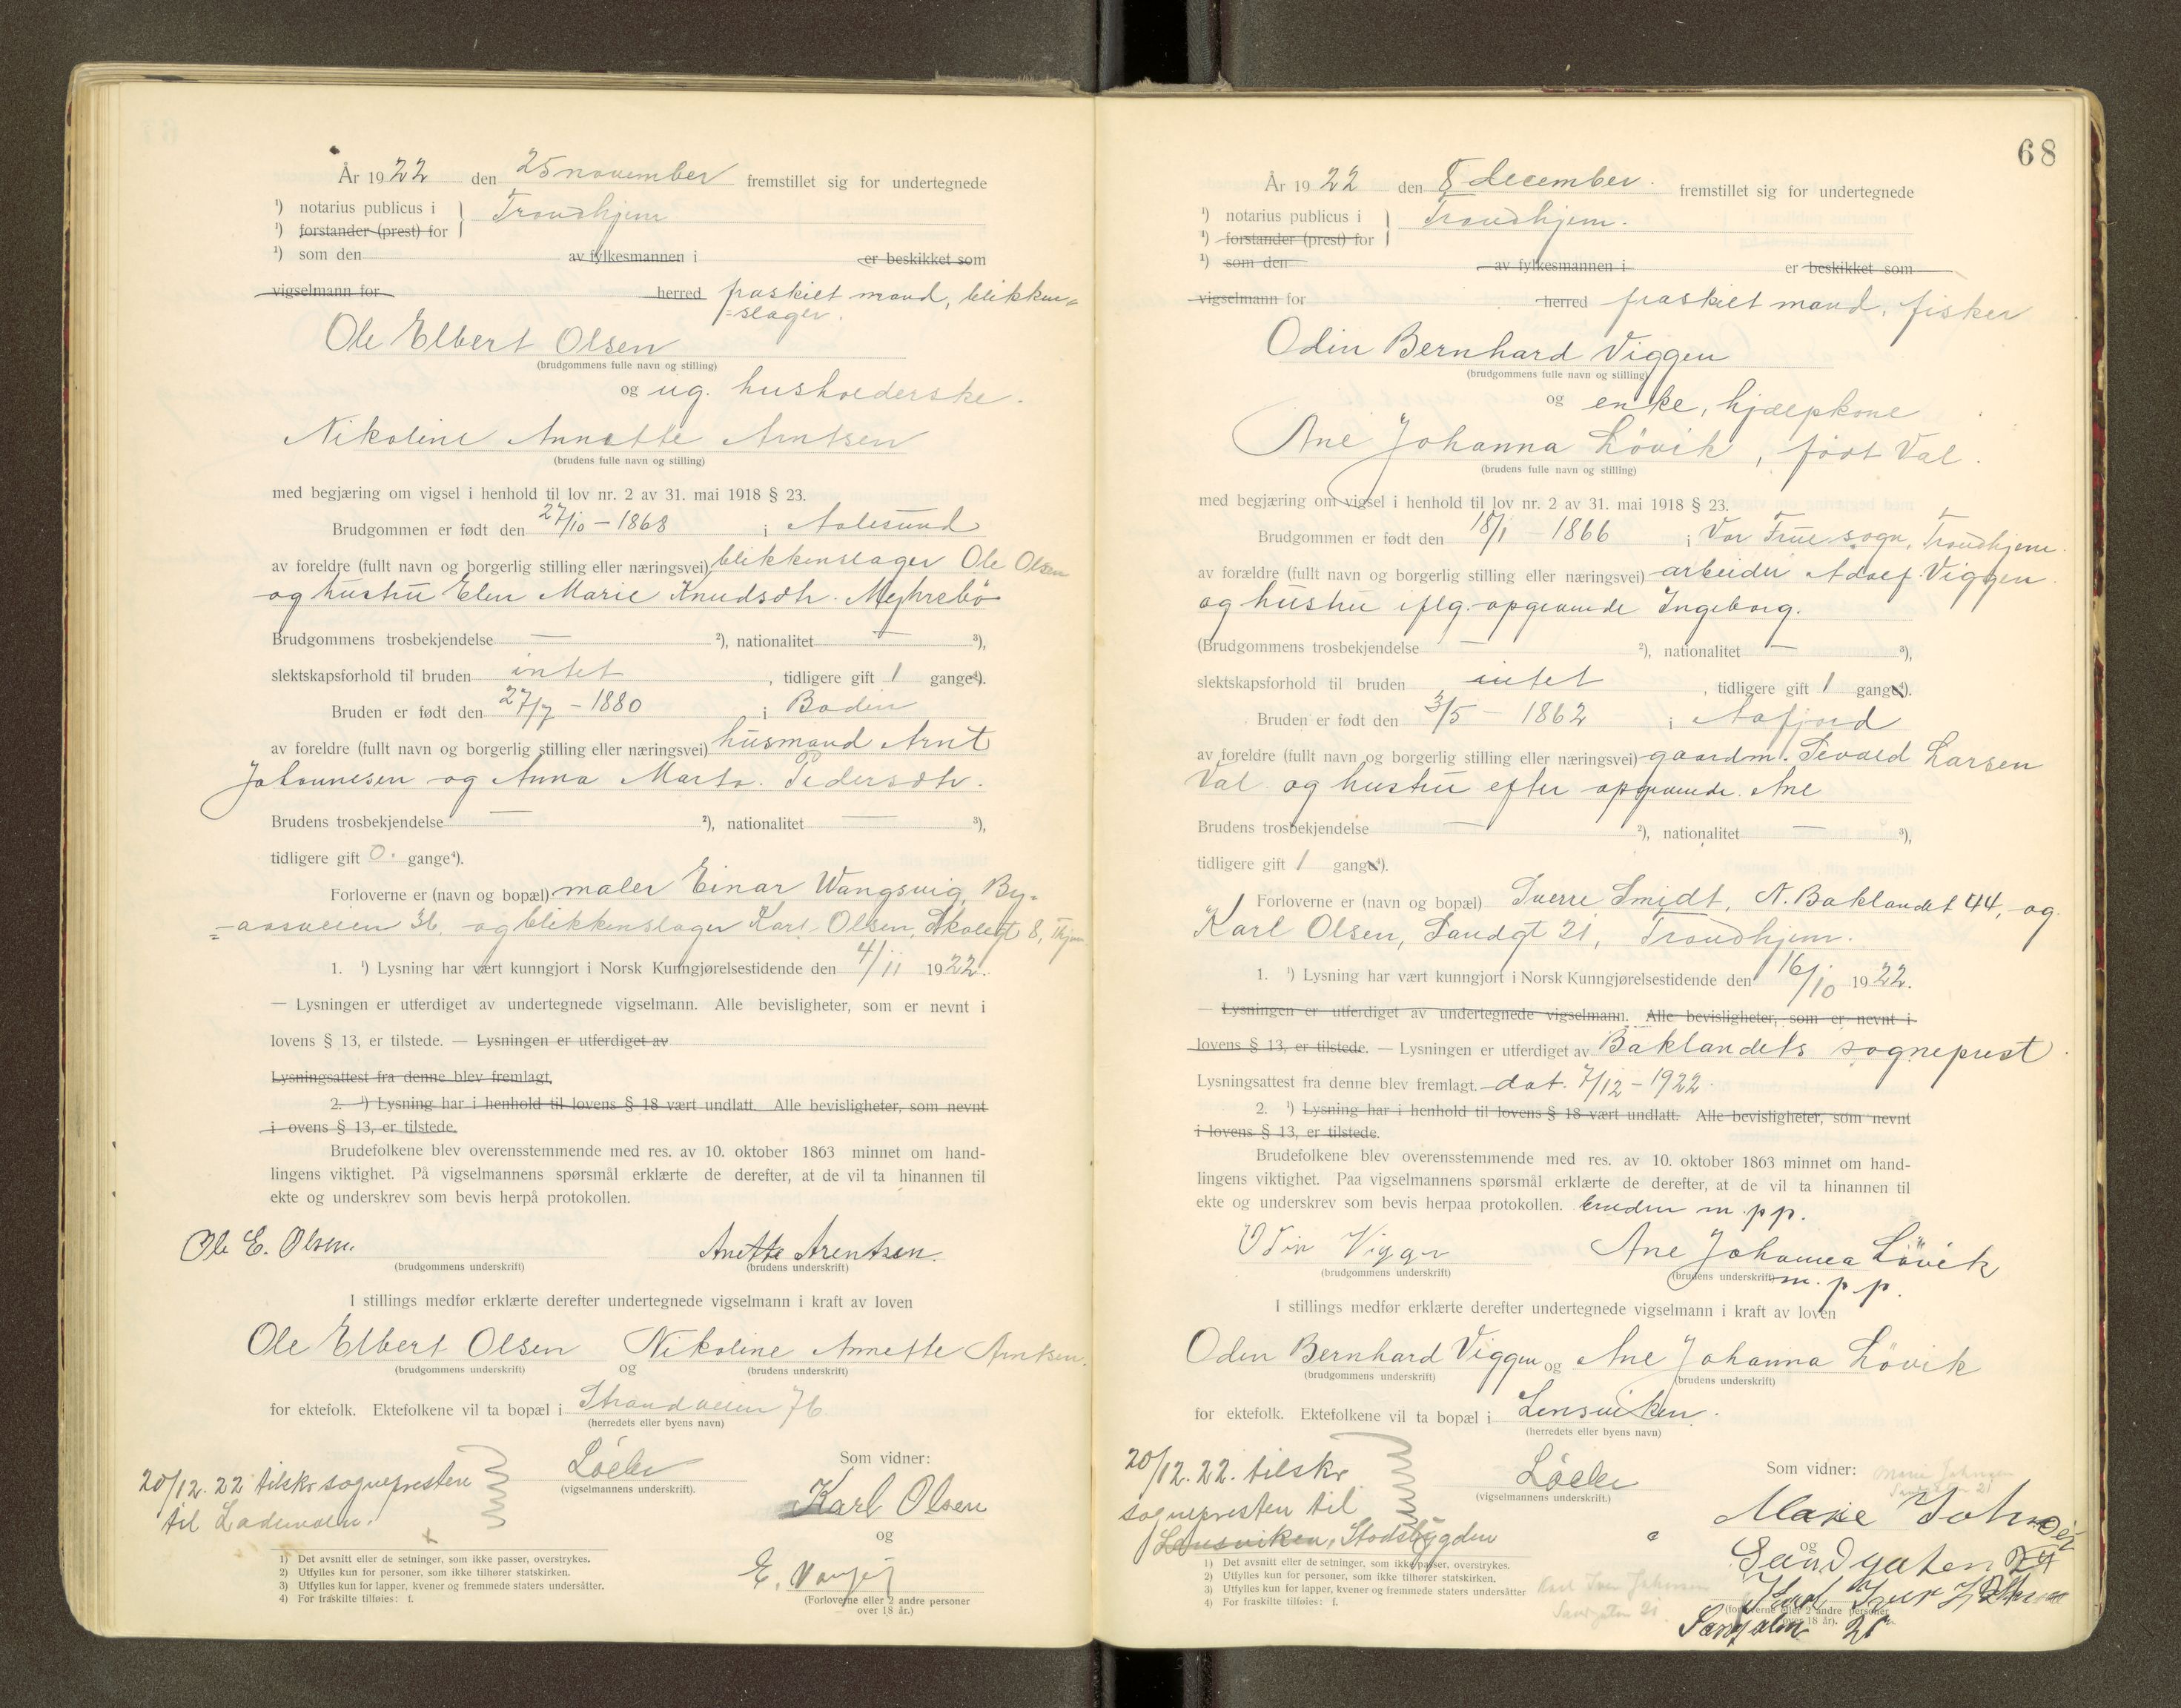 År 1922 den 25 november fremstillet sig for undertegnede
¹) notarius publicus i Trondhjem
¹) forstander (prest) for
¹) som den av fylkesmannen i er beskikket som
vigselmann for herred fraskilt mand, blikken=
=slager.
Ole Elbert Olsen
(brudgommens fulle navn og stilling)
og ug. husholderske.
Nikoline Annette Arntsen
(brudens fulle navn og stilling)
med begjæring om vigsel i henhold til lov nr. 2 av 31. mai 1918 § 23.
Brudgommen er født den 27/10 - 1868 i Aalesund
av foreldre (fullt navn og borgerlig stilling eller næringsvei) blikkenslager Ole Olsen
og hustru Elen Marie Knudsdtr.
Brudgommens trosbekjendelse — ²), nationalitet — ³),
slektskapsforhold til bruden intet, tidligere gift 1 gange⁴).
Bruden er født den 27/7 - 1880 i Bodin
av foreldre (fullt navn og borgerlig stilling eller næringsvei) husmand Arnt
Johannesen og Anna Marta Pedersdtr.
Brudens trosbekjendelse — ²), nationalitet — ³),
tidligere gift 0. gange⁴).
Forloverne er (navn og bopæl) maler Einar Wangsvig, By-
=aasveien 36. og blikkenslager Karl Olsen, 8, Thjem.
1. ¹) Lysning har vært kunngjort i Norsk Kunngjørelsestidende den 4/11 1922.
— Lysningen er utferdiget av undertegnede vigselmann. Alle bevisligheter, som er nevnt i
lovens § 13, er tilstede. — Lysningen er utferdiget av
Lysningsattest fra denne blev fremlagt.
2. ¹) Lysning har i henhold til lovens § 18 vært undlatt. Alle bevisligheter, som nevnt
i ovens § 13, er tilstede.
Brudefolkene blev overensstemmende med res. av 10. oktober 1863 minnet om hand-
lingens viktighet. På vigselmannens spørsmål erklærte de derefter, at de vil ta hinannen til
ekte og underskrev som bevis herpå protokollen.
Ole E. Olsen. Anette Arentsen.
(brudgommens underskrift) (brudens underskrift)
I stillings medfør erklærte derefter undertegnede vigselmann i kraft av loven
Ole Elbert Olsen og Nikoline Annette Arntsen.
(brudgommens underskrift) (brudens underskrift)
for ektefolk. Ektefolkene vil ta bopæl i Strandveien 76
(herredets eller byens navn)
20/12. 22 tilskr. sognepresten
til Lademoen.
(vigselmannens underskrift).
Som vidner:
Karl Olsen
og
E.
(Forloverne eller 2 andre personer
over 18 år.)
1) Det avsnitt eller de setninger, som ikke passer, overstrykes.
2) Utfylles kun for personer, som ikke tilhører statskirken.
3) Utfylles kun for lapper, kvener og fremmede staters undersåtter.
4) For fraskilte tilføies: f.
68
År 1922 den 8 december. fremstillet sig for undertegnede
¹) notarius publicus i Trondhjem.
¹) forstander (prest) for
¹) som den av fylkesmannen i er beskikket som
vigselmann for herred fraskilt mand, fisker
Odin Bernhard Viggen
(brudgommens fulle navn og stilling)
og enke, hjælpkone
Ane Johanna Lövik, født Val.
(brudens fulle navn og stilling)
med begjæring om vigsel i henhold til lov nr. 2 av 31. mai 1918 § 23.
Brudgommen er født den 18/1 - 1866 i Vor Frue sogn, Trondhjem.
av forældre (fullt navn og borgerlig stilling eller næringsvei) arbeider Adolf Viggen
og hustru iflg. opgivende Ingeborg.
(Brudgommens trosbekjendelse — ²), nationalitet — ³),
slektskapsforhold til bruden intet, tidligere gift 1 gange⁴).
Bruden er født den 3/5 - 1862 i Aafjord
av foreldre (fullt navn og borgerlig stilling eller næringsvei) gaardm. Sevald Larsen
Val og hustru efter opgivende Ane
Brudens trosbekjendelse — ²), nationalitet — ³),
tidligere gift 1 gange⁴).
Forloverne er (navn og bopæl) Sverre Smidt, N. Baklandet 44, og
Karl Olsen, Sandgt 21, Trondhjem.
1. ¹) Lysning har vært kunngjort i Norsk Kunngjørelsestidende den 16/10 1922.
— Lysningen er utferdiget av undertegnede vigselmann. Alle bevisligheter, som er nevnt i
lovens § 13, er tilstede. — Lysningen er utferdiget av Baklandets sogneprest
Lysningsattest fra denne blev fremlagt. dat. 7/12 - 1922.
2. ¹) Lysning har i henhold til lovens § 18 vært undlatt. Alle bevisligheter, som nevnt
i lovens § 13, er tilstede.
Brudefolkene blev overensstemmende med res. av 10. oktober 1863 minnet om hand-
lingens viktighet. Paa vigselmannens spørsmål erklærte de derefter, at de vil ta hinannen til
ekte og underskrev som bevis herpaa protokollen. bruden m. p p.
Odin Viggen Ane Johanna Lövik
(brudgommens underskrift) (brudens underskrift) m. p p.
I stillings medfør erklærte derefter undertegnede vigselmann i kraft av loven
Odin Bernhard Viggen og Ane Johanna Lövik
(brudgommens underskrift) (brudens underskrift)
for ektefolk. Ektefolkene vil ta bopæl i Lensviken.
(herredets eller byens navn)
20/12. 22. tilskr.
sognepresten til
Lensviken, Stadsbygden
(vigselmannens underskrift.)
Som vidner: Marie Johnsen
Sandgaten 21
Marie Johnsen
og
Sandgaten 21
Karl Iver Johnsen
(forloverne eller 2 andre personer
over 18 år).
Sandgaten 21
1) Det avsnitt eller de setninger, som ikke passer, overstrykes.
2) Utfylles kun for personer, som ikke tilhører statskirken.
3) Utfylles kun for lapper, kvener og fremmede staters undersåtter
4) For fraskilte tilføies: f.
Karl Iver Johnsen
Sandgaten 21.